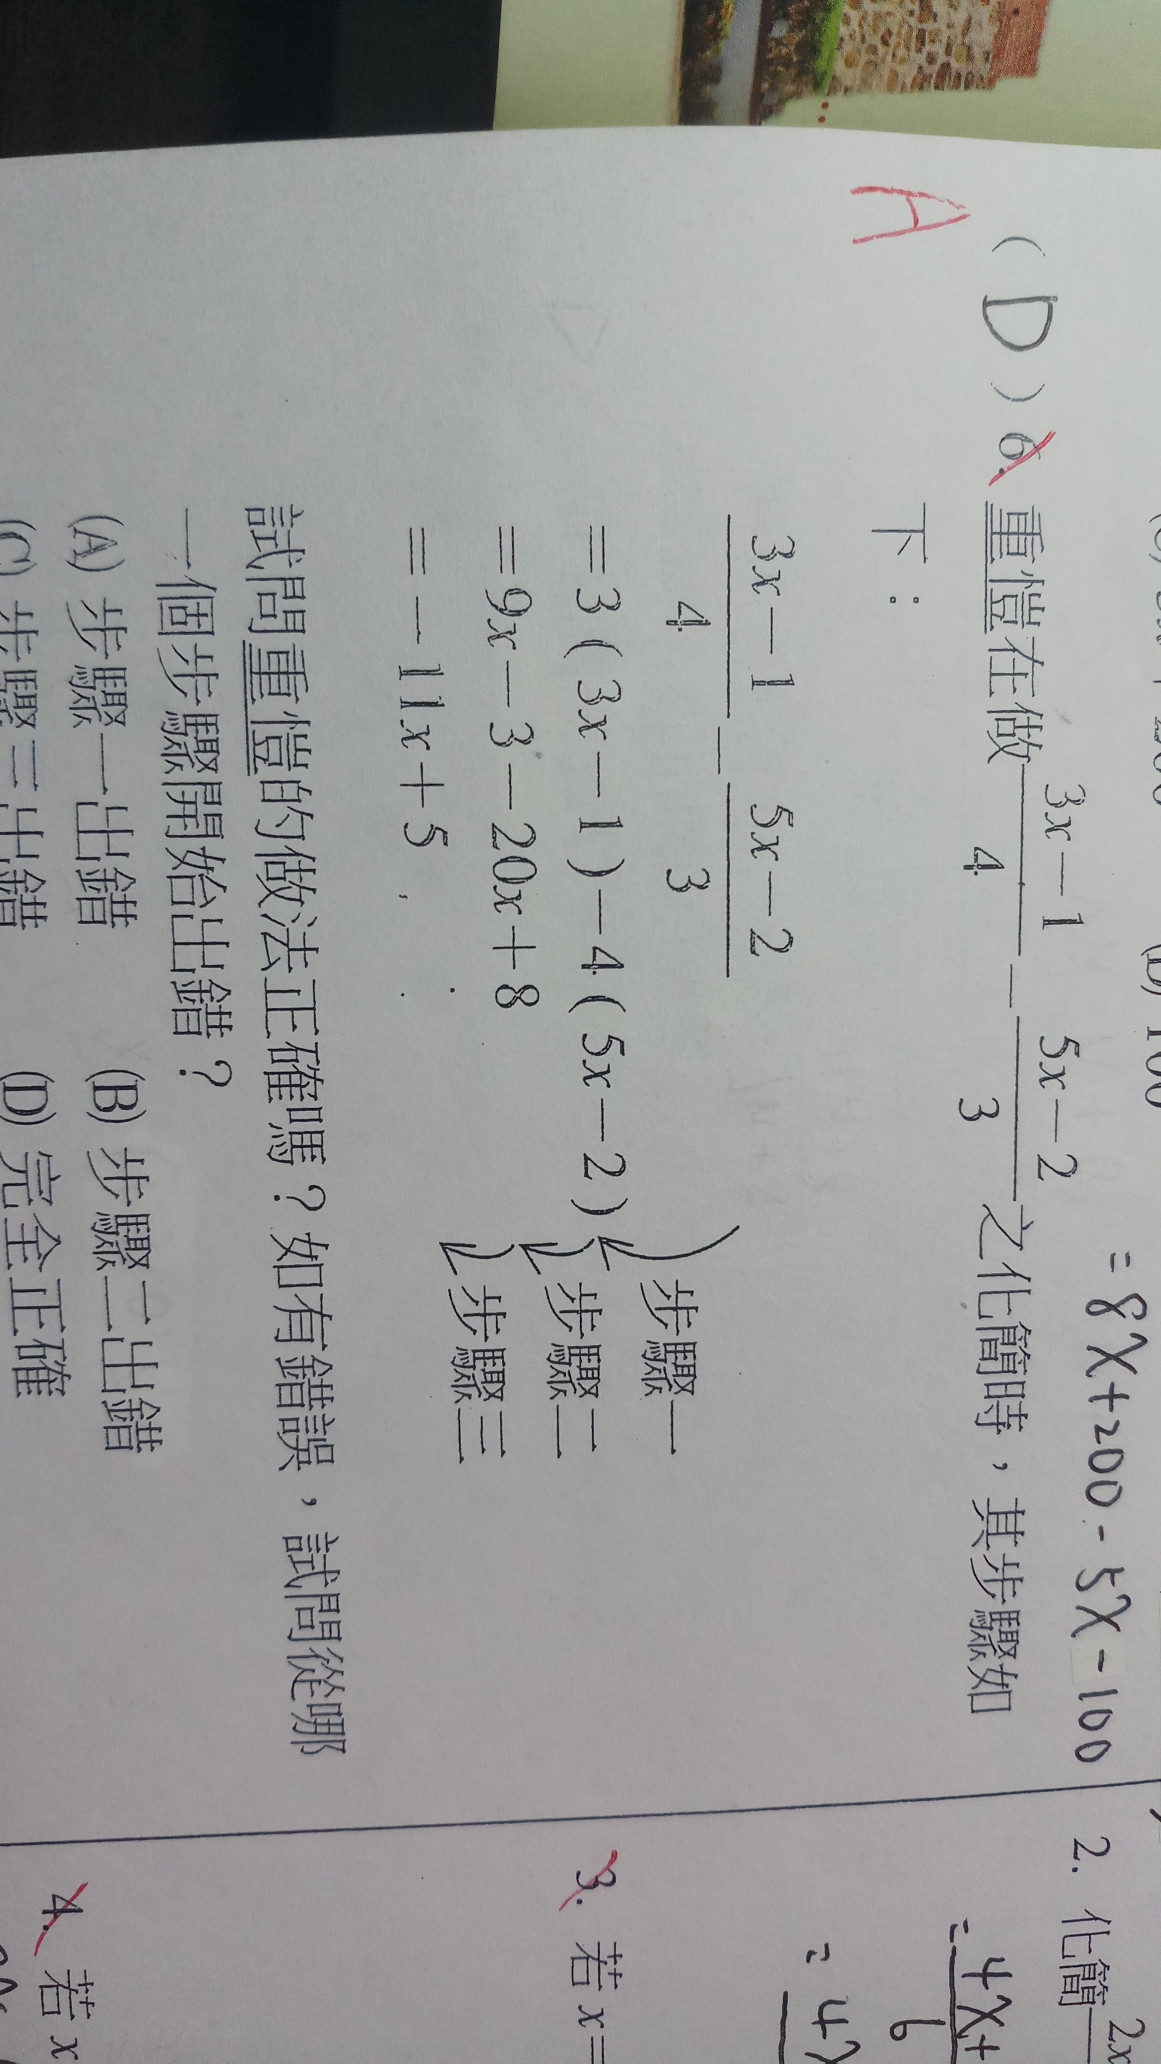 (D) 100
= 8X+200-5X-100
A
( D ) 6. 重愷在做 (3x-1)/4 - (5x-2)/3 之化簡時,其步驟如
下:
(3x-1)/4 - (5x-2)/3
=3(3x-1)-4(5x-2) 步驟一
=9x-3-20x+8 步驟二
=-11x+5 步驟三
試問重愷的做法正確嗎?如有錯誤,試問從哪
一個步驟開始出錯?
(A) 步驟一出錯 (B) 步驟二出錯
(C) 步驟三出錯 (D) 完全正確
2. 化簡 2x
= 4X+
6
= 4X
3. 若 x=
4. 若 x